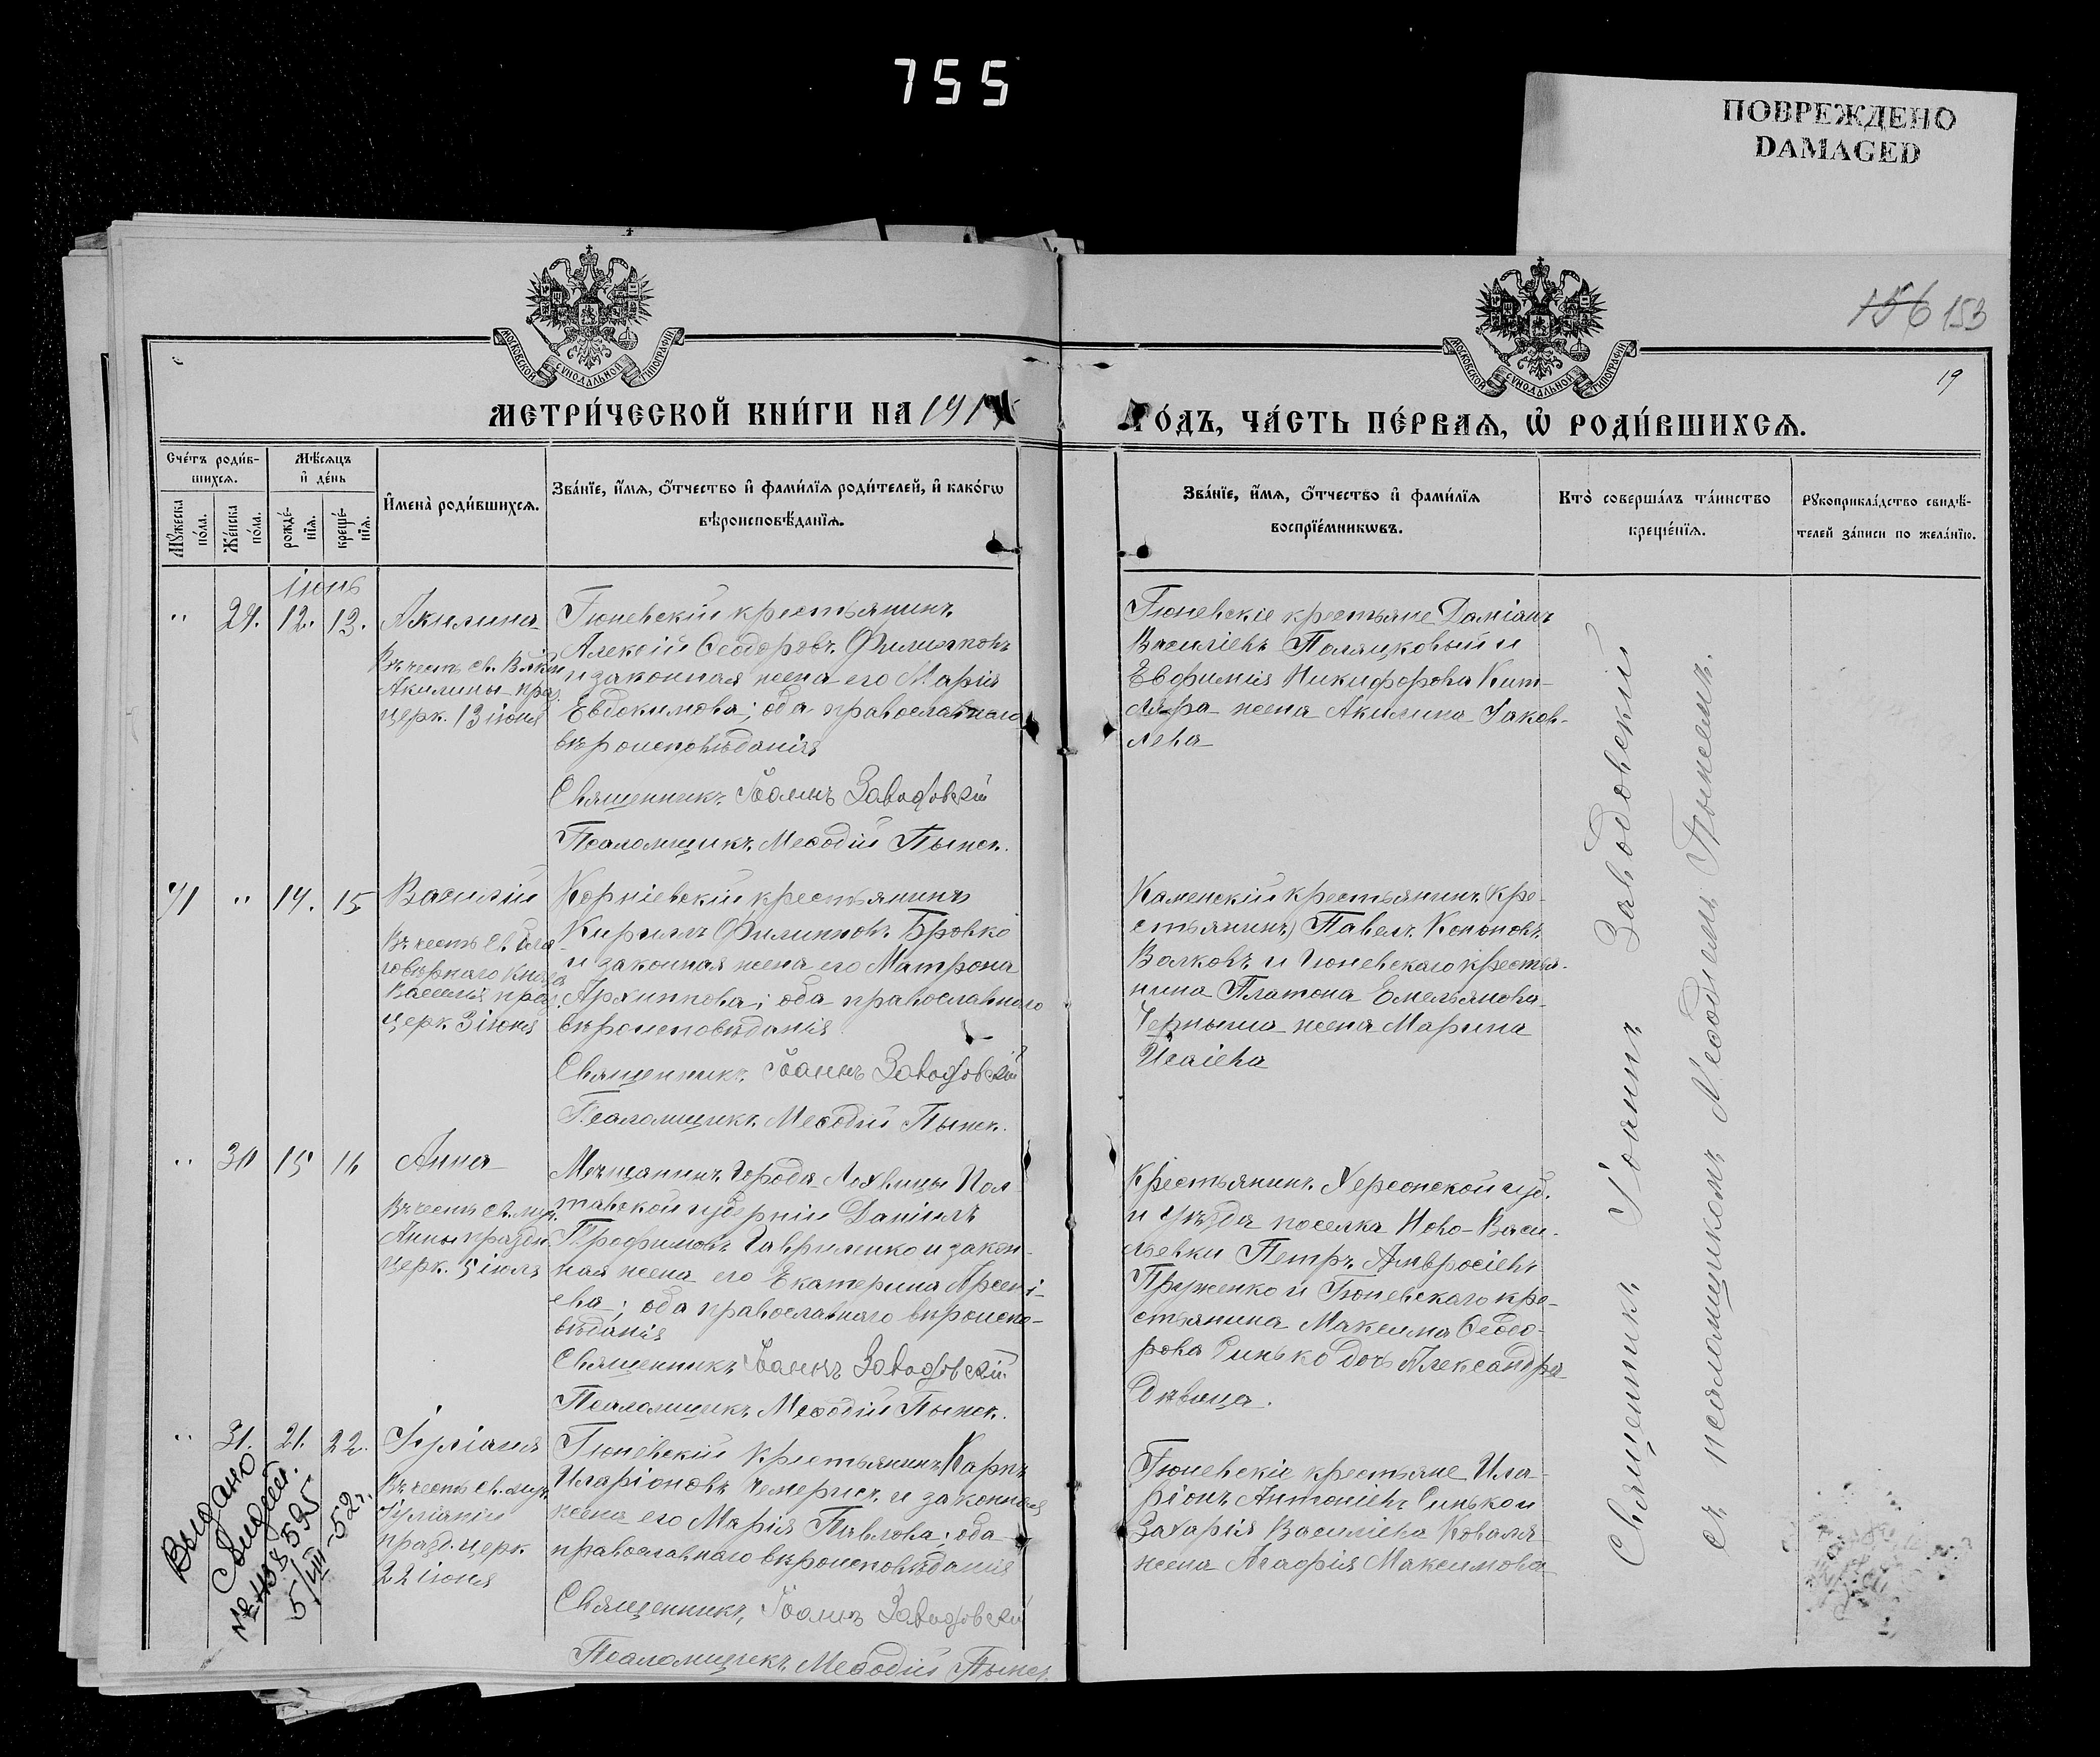 755
ПОВРЕЖДЕНО
DAMAGED
156 153
19
МОСКОВСКОЙ СѴНОДАЛЬНОЙ ТИПОГРАФІИ
МОСКОВСКОЙ СѴНОДАЛЬНОЙ ТИПОГРАФІИ
МЕТРИ́ЧЕСКОЙ КНИ́ГИ НА 191
ГО́ДЪ, ЧА́СТЬ ПЕ́РВАѦ, Ѡ҆ РОДИ́ВШИХСѦ.
Сче́тъ роди́в-
шихсѧ.
Мꙋ́жеска по́ла.
Же́нска по́ла.
Мѣ́сѧцъ
и҆ де́нь
рожде́-
нїѧ.
креще́-
нїѧ.
И҆мена̀ роди́вшихсѧ.
Зва́нїе, и҆́мѧ, ѻ҆́тчество и҆ фами́лїѧ роди́телей, и҆ како́гѡ
вѣроисповѣ́данїѧ.
Зва́нїе, и҆́мѧ, ѻ҆́тчество и҆ фами́лїѧ
воспрїе́мникѡвъ.
Кто̀ соверша́лъ та́инство
креще́нїѧ.
Рꙋкоприкла́дство свидѣ́-
телей за́писи по жела́нїю.
Іюнь
" 29. 12. 13. Акилина
Въ честь св.
Акилины праз.
церк. 13 іюня
Гюневскій крестьянинъ
Алексій Ѳеодоровъ Филипповъ
и законная жена его Марія
Евдокимова; оба православнаго
вѣроисповѣданія
Священникъ Іоаннъ Заводовскій
Псаломщикъ Меѳодій Пынех.
Гюневскіе крестьяне Даміанъ
Василіевъ Паляцковый и
Евфимія Никифорова Кит-
ляра жена Акилина Іаков-
лева
41 " 14. 15 Василій
Въ честь св. Бла-
говѣрнаго князя
Василія праз.
церк. 3 іюня
Корніевскій крестьянинъ
Кириллъ Филипповъ Бровко
и законная жена его Матрона
Архиппова; оба православнаго
вѣроисповѣданія
Священникъ Іоаннъ Заводовскій
Псаломщикъ Меѳодій Пынех.
Каменскій крестьянинъ (кре-
стьянинъ) Павелъ Кононовъ
Волковъ и Гюневскаго крестья-
нина Платона Емельянова
Черныша жена Марина
Исаіева
" 30 15 16 Анна
Въ честь св. муч.
Анны праздн.
церк. 5 іюля
Мѣщанинъ города Лохвицы Пол-
тавской губерніи Даніилъ
Трофимовъ Гавриленко и закон-
ная жена его Екатерина Арсені-
ева; оба православнаго вѣроиспо-
вѣданія
Священникъ Іоаннъ Заводовскій
Псаломщикъ Меѳодій Пынех.
Крестьянинъ Херсонской губ.
и уѣзда поселка Ново-Васи-
льевки Петръ Амвросіевъ
Пруженко и Гюневскаго кре-
стьянина Максима Ѳеодо-
рова Синько дочь Александра
дѣвица.
" 31. 21. 22. Іуліанія
Въ честь св. муч.
Іуліаніи
празд. церк
22 іюня
Гюневскій крестьянинъ Карпъ
Иларіоновъ Чемерисъ и законная
жена его Марія Павлова; оба
православнаго вѣроисповѣданія
Священникъ Іоаннъ Заводовскій
Псаломщикъ Меѳодій Пынех.
Гюневскіе крестьяне Ила-
ріонъ Антоніевъ Синько и
Захарія Василіева Коваля
жена Агафія Максимова
Выдано
Свидет.
5/VIII-52г.
Священникъ Іоаннъ Заводовскій
съ псаломщикомъ Меѳодіемъ